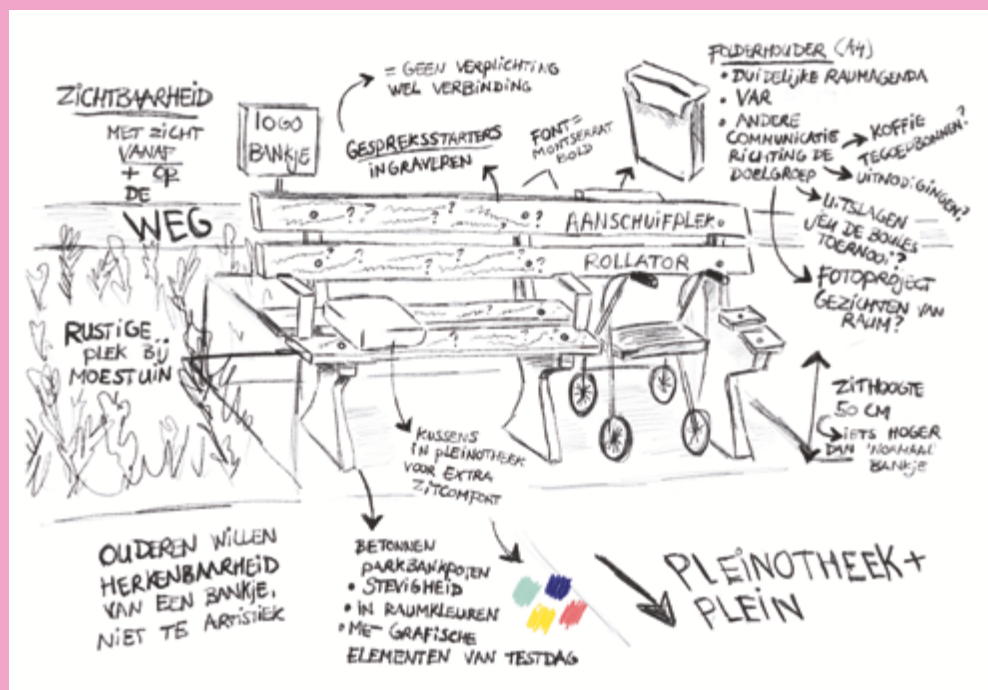 ZICHTBAARHEID
MET ZICHT
VANAF
+ OP
DE
WEG
LOGO
BANKJE
= GEEN VERPLICHTING
WEL VERBINDING
GESPREKSSTARTERS
INGRAVEREN
FONT=
MONTSERRAT
BOLD
FOLDERHOUDER (A4)
• DUIDELIJKE RAUMAGENDA
• VAR
• ANDERE
COMMUNICATIE
RICHTING DE
DOELGROEP
KOFFIE
TEGOEDBONNEN?
UITNODIGINGEN?
UITSLAGEN
JEU DE BOULES
TOERNOOI?
FOTOPROJECT
GEZICHTEN VAN
RAUM?
? ? ? ? ?
AANSCHUIFPLEK
? ? ? ?
ROLLATOR
RUSTIGE
PLEK BIJ
MOESTUIN
ZITHOOGTE
50 CM
IETS HOGER
DAN 'NORMAAL'
BANKJE
KUSSENS
IN PLEINOTHEEK
VOOR EXTRA
ZITCOMFORT
OUDEREN WILLEN
HERKENBAARHEID
VAN EEN BANKJE,
NIET TE ARTISTIEK
BETONNEN
PARKBANKPOTEN
• STEVIGHEID
• IN RAUMKLEUREN
• MET GRAFISCHE
ELEMENTEN VAN TESTDAG
PLEINOTHEEK+
PLEIN